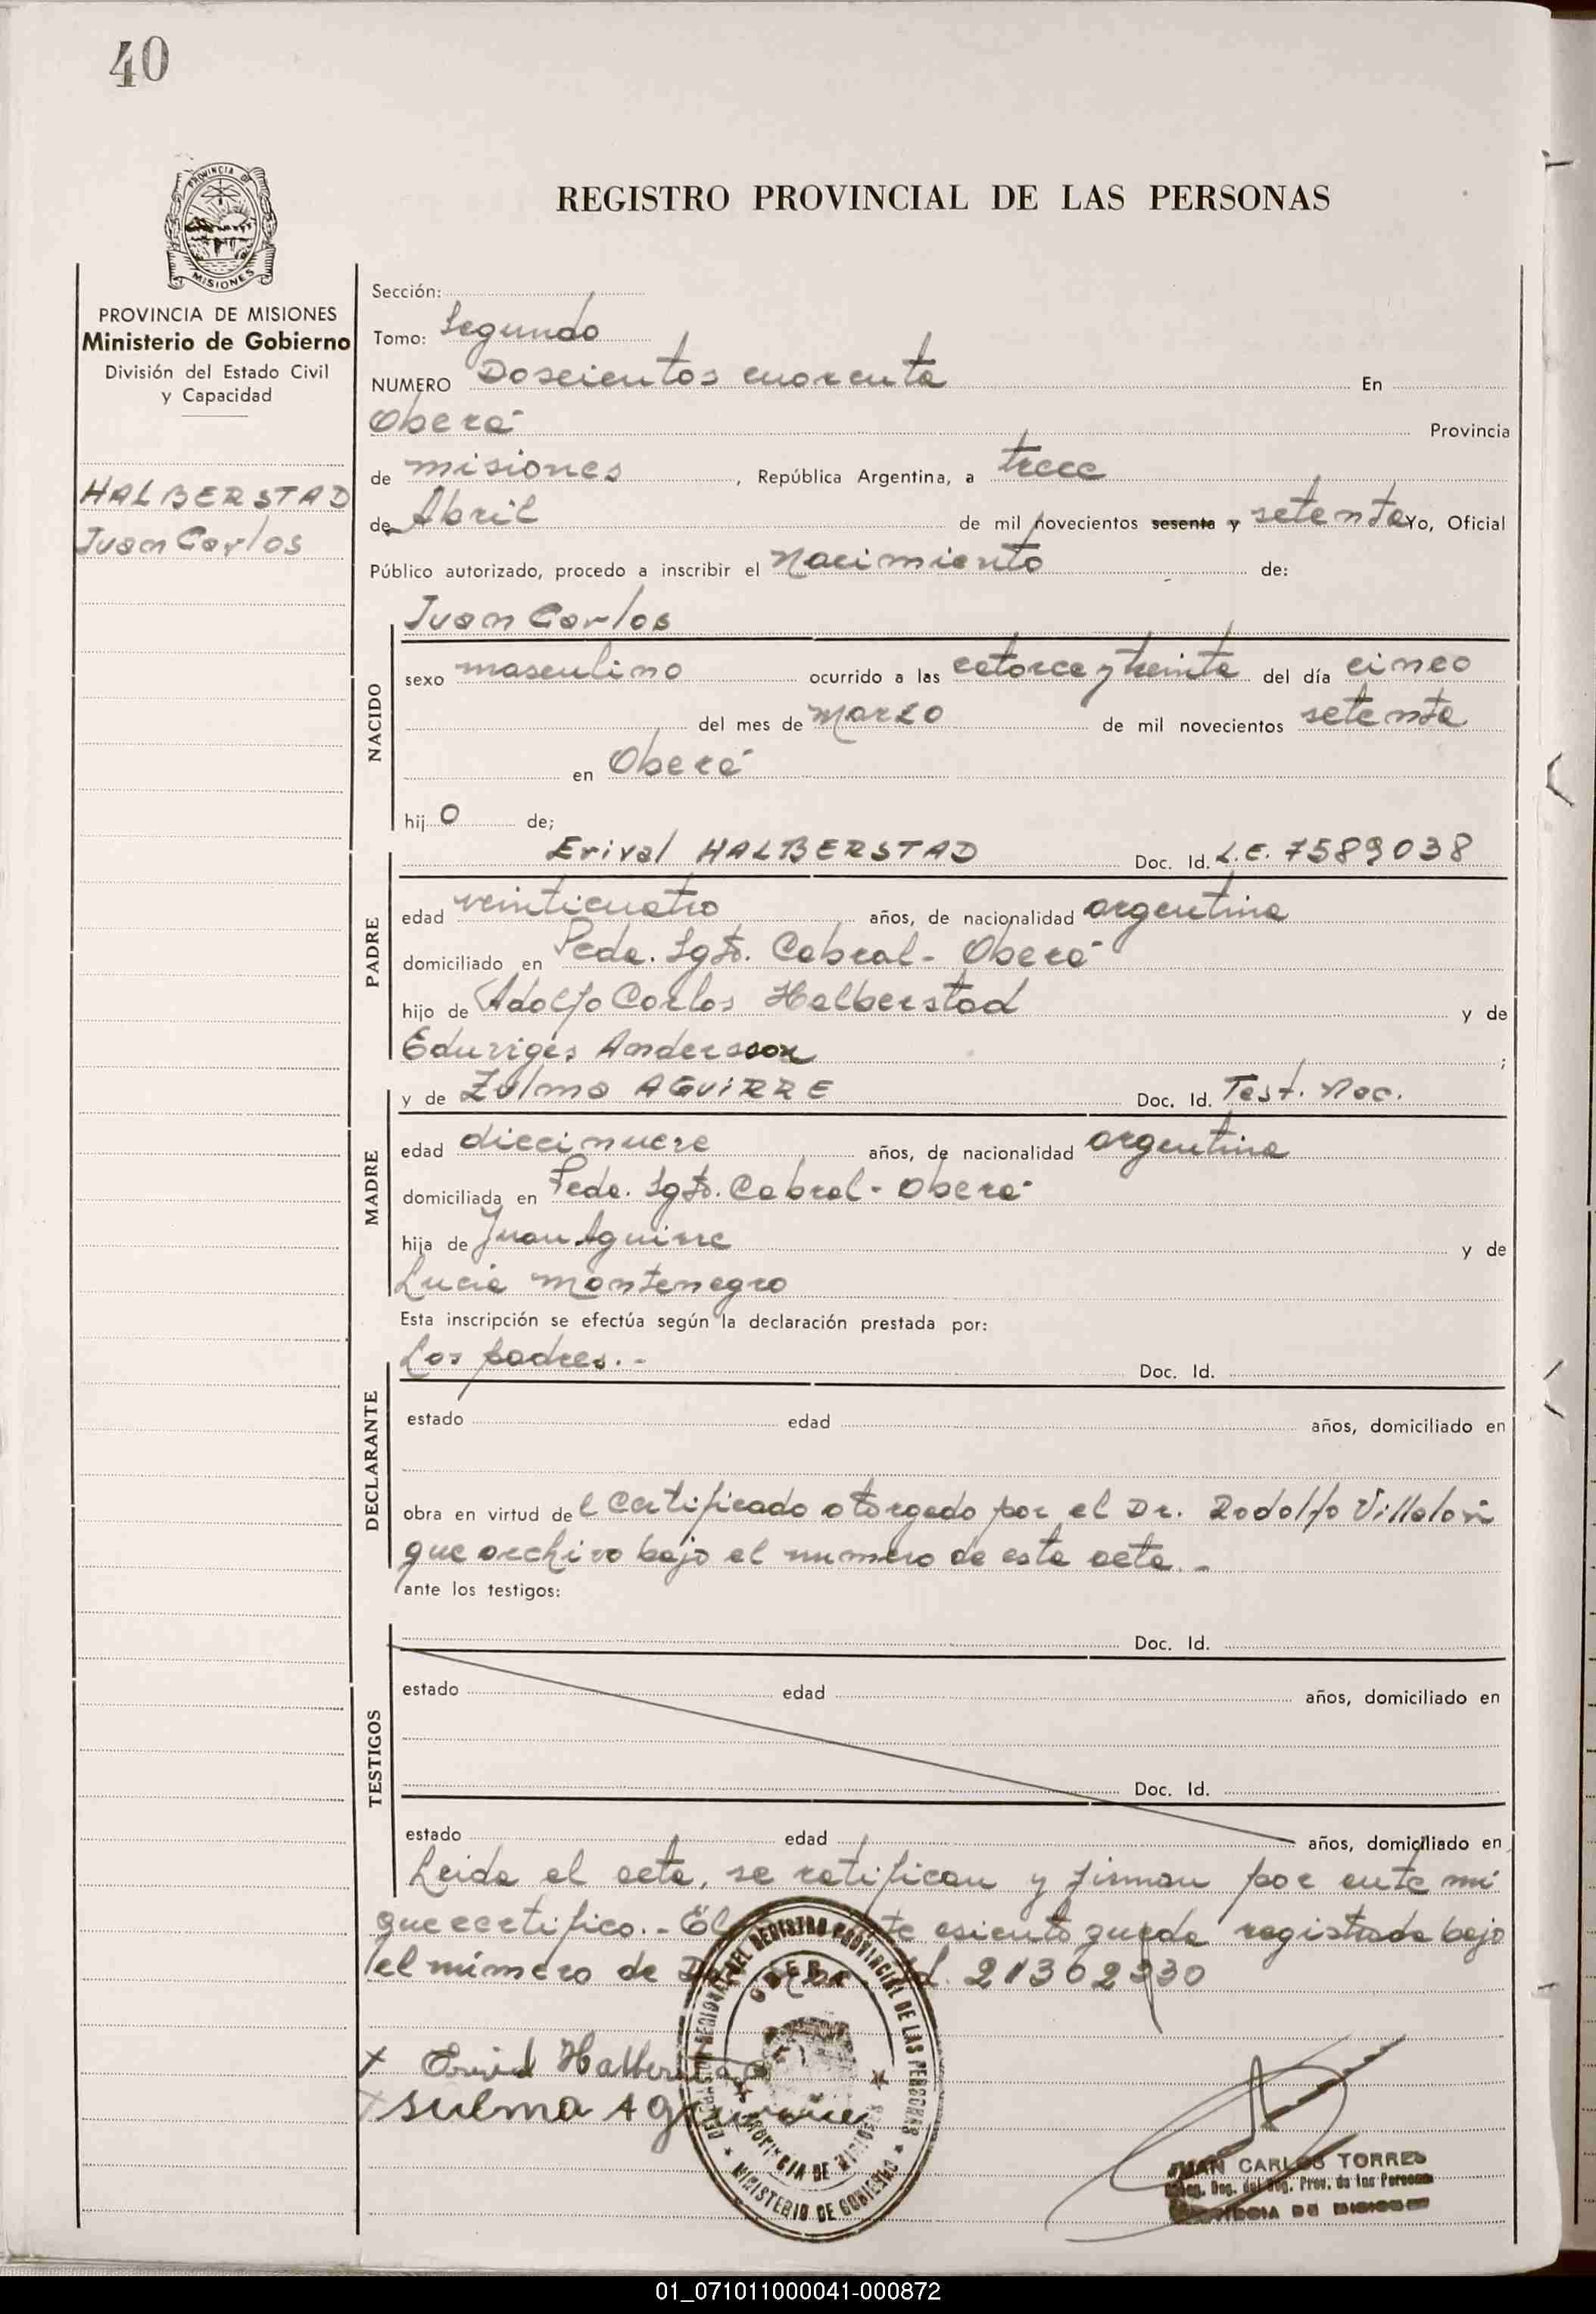 40
PROVINCIA DE
MISIONES
PROVINCIA DE MISIONES
Ministerio de Gobierno
División del Estado Civil
y Capacidad
HALBERSTAD
Juan Carlos
REGISTRO PROVINCIAL DE LAS PERSONAS
Sección:
Tomo: Segundo
NUMERO Doscientos cuarenta En
Oberá Provincia
de misiones, República Argentina, a trece
de Abril de mil novecientos sesenta y setenta Yo, Oficial
Público autorizado, procedo a inscribir el Nacimiento de:
Juan Carlos
NACIDO
sexo masculino ocurrido a las catorce y treinta del día cinco
del mes de Marzo de mil novecientos setenta
en Oberá
hij o de;
Erival HALBERSTAD Doc. Id. L.E. 7589038
PADRE
edad veinticuatro años, de nacionalidad argentina
domiciliado en Pcda. Sgto. Cabral - Oberá
hijo de Adolfo Carlos Halberstad y de
Eduviges Andersson ;
y de Zulma AGUIRRE Doc. Id. Test. Nac.
MADRE
edad diecinueve años, de nacionalidad argentina
domiciliada en Pcda. Sgto. Cabral - Oberá
hija de Juan Aguirre y de
Lucia Montenegro
Esta inscripción se efectúa según la declaración prestada por:
Los padres.- Doc. Id.
DECLARANTE
estado edad años, domiciliado en
obra en virtud de l certificado otorgado por el Dr. Rodolfo
que archivo bajo el numero de esta acta.-
ante los testigos:
TESTIGOS
Doc. Id.
estado edad años, domiciliado en
Doc. Id.
estado edad años, domiciliado en
Leida el acta, se ratifican y firman por ante mi
que certifico.- El asiento queda registrado bajo
el número de 21302330
x Halberstad
x Sulma Aguirre
DELEGACION REGIONAL DEL REGISTRO PROVINCIAL DE LAS PERSONAS
OBERA
PROVINCIA DE MISIONES
MINISTERIO DE GOBIERNO
JUAN CARLOS TORRES
Reg. Prov. de las Personas
PROVINCIA DE MISIONES
01_071011000041-000872